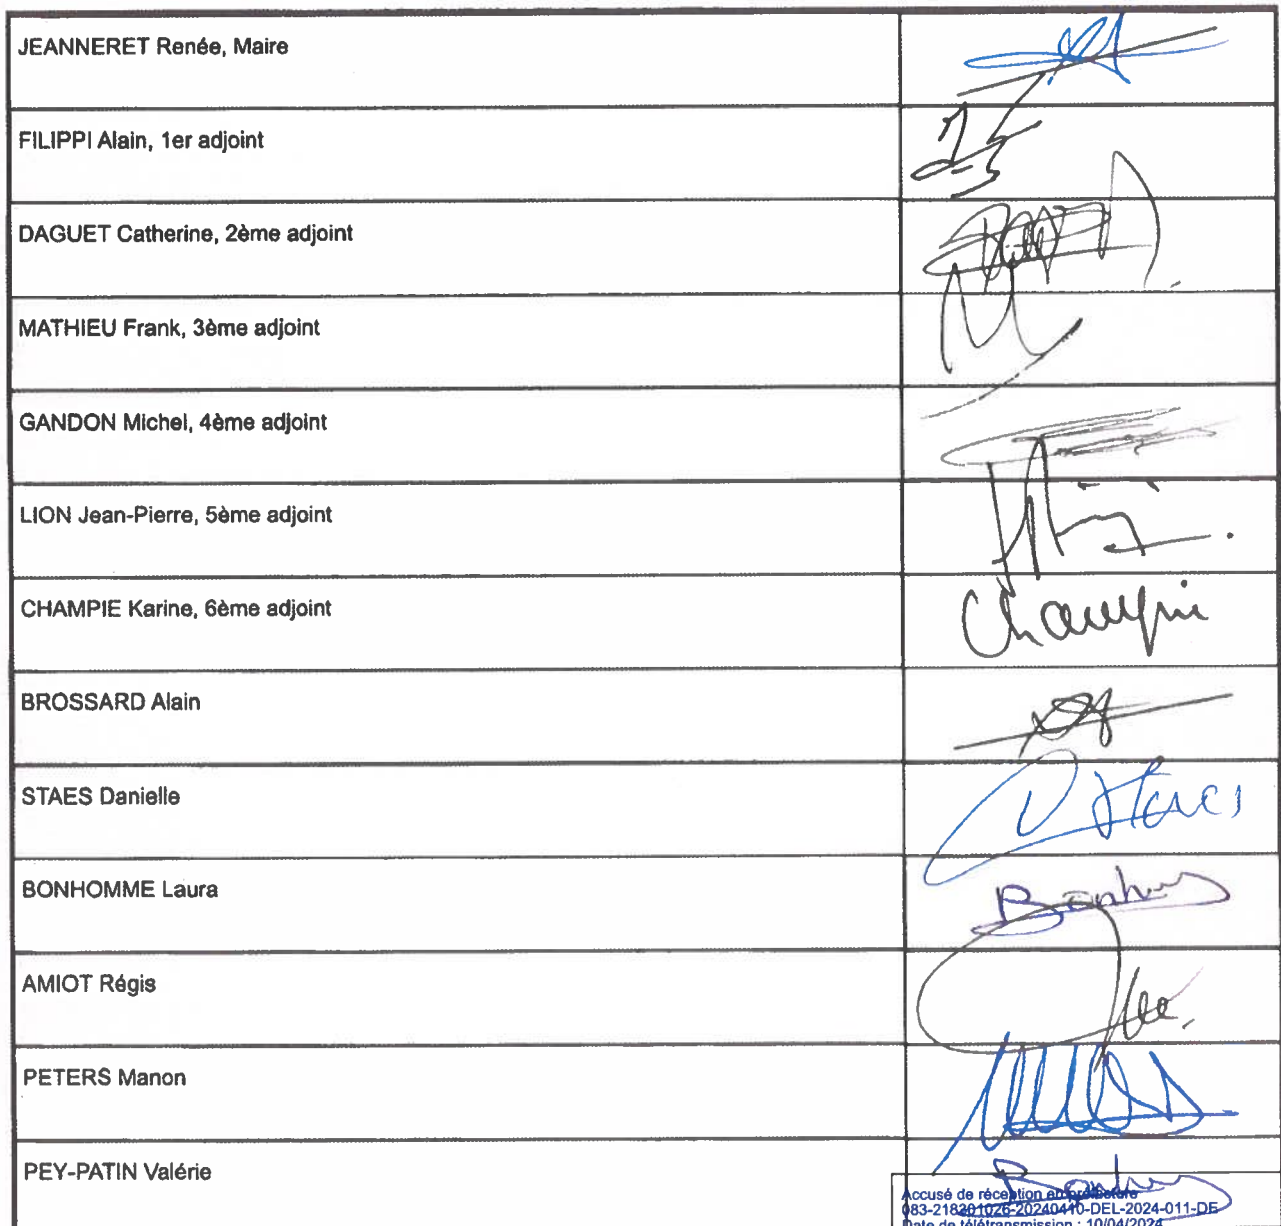 JEANNERET Renée, Maire
FILIPPI Alain, 1er adjoint
DAGUET Catherine, 2ème adjoint
MATHIEU Frank, 3ème adjoint
GANDON Michel, 4ème adjoint
LION Jean-Pierre, 5ème adjoint
CHAMPIE Karine, 6ème adjoint
Champie
BROSSARD Alain
STAES Danielle
D Staes
BONHOMME Laura
AMIOT Régis
PETERS Manon
PEY-PATIN Valérie
Accusé de réception en préfecture
083-218301026-20240410-DEL-2024-011-DE
Date de télétransmission : 10/04/2024